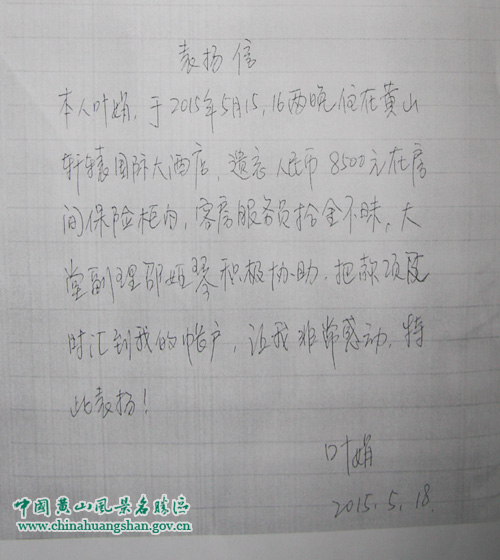 表扬信
本人叶娟，于2015年5月15，16两晚住在黄山
轩辕国际大酒店，遗忘人民币8500元在房
间保险柜内，客房服务员拾金不昧，大
堂副理邵娅琴积极协助，把款项及
时汇到我的帐户，让我非常感动，特
此表扬！
叶娟
2015.5.18
中國黄山風景名勝區
www.chinahuangshan.gov.cn